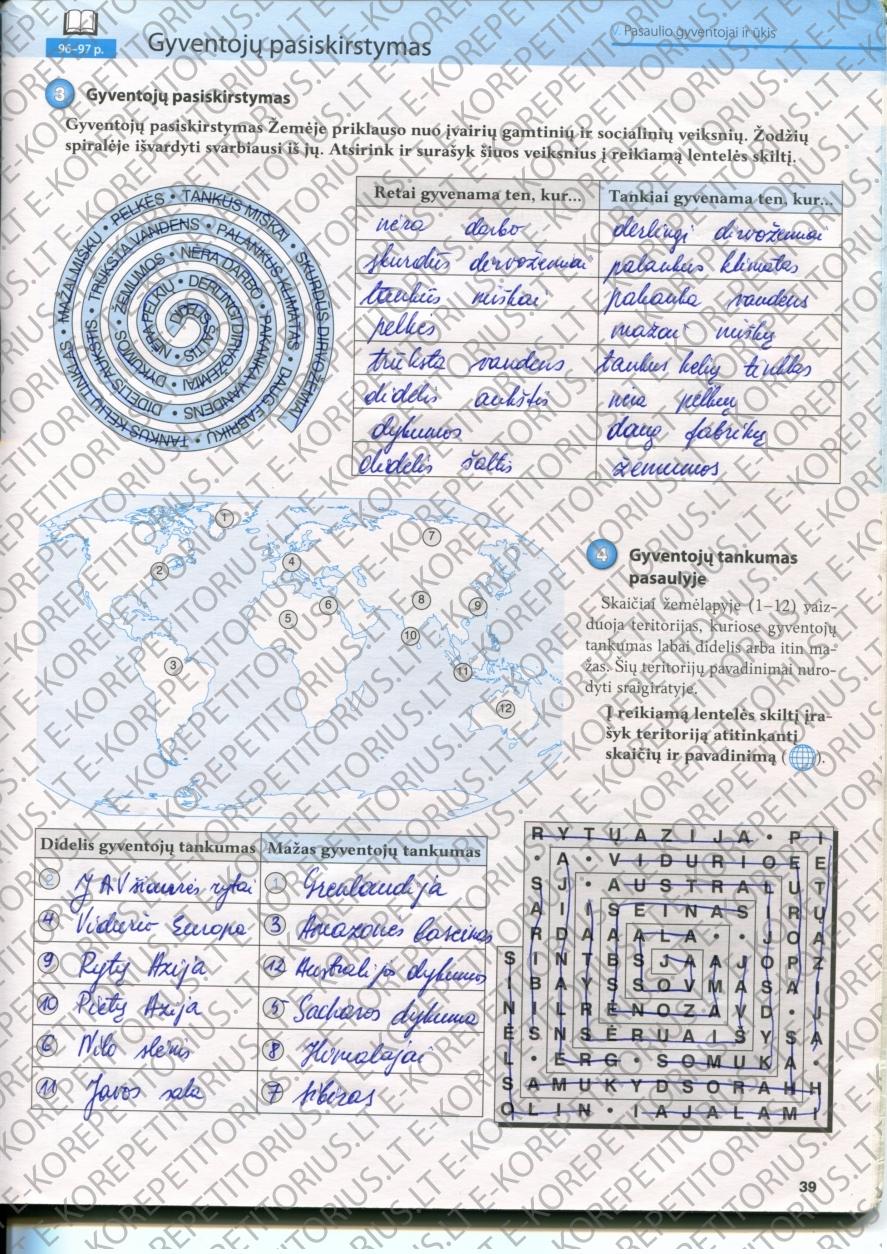 96–97 p.
Gyventojų pasiskirstymas
V. Pasaulio gyventojai ir ūkis
3 Gyventojų pasiskirstymas
Gyventojų pasiskirstymas Žemėje priklauso nuo įvairių gamtinių ir socialinių veiksnių. Žodžių
spiralėje išvardyti svarbiausi iš jų. Atsirink ir surašyk šiuos veiksnius į reikiamą lentelės skiltį.
DIDELIS ŠALTIS • NĖRA PELKIŲ • DERLINGI DIRVOŽEMIAI • DYKUMOS • ŽEMUMOS • NĖRA DARBO • PAKANKA VANDENS • DIDELIS AUKŠTIS • TRŪKSTA VANDENS • PALANKUS KLIMATAS • DAUG FABRIKŲ • TANKUS KELIŲ TINKLAS • MAŽAI MIŠKŲ • PELKĖS • TANKŪS MIŠKAI • SKURDŪS DIRVOŽEMIAI
Retai gyvenama ten, kur... Tankiai gyvenama ten, kur...
nėra darbo derlingi dirvožemiai
skurdūs dirvožemiai palankus klimatas
tankūs miškai pakanka vandens
pelkės mažai miškų
trūksta vandens tankus kelių tinklas
didelis aukštis nėra pelkių
dykumos daug fabrikų
didelis šaltis žemumos
1
2
3
4
5
6
7
8
9
10
11
12
4 Gyventojų tankumas
pasaulyje
Skaičiai žemėlapyje (1–12) vaiz-
duoja teritorijas, kuriose gyventojų
tankumas labai didelis arba itin ma-
žas. Šių teritorijų pavadinimai nuro-
dyti sraigiratyje.
Į reikiamą lentelės skiltį įra-
šyk teritoriją atitinkantį
skaičių ir pavadinimą ( ).
Didelis gyventojų tankumas Mažas gyventojų tankumas
2 JAV šiaurės rytai 1 Grenlandija
4 Vidurio Europa 3 Amazonės baseinas
9 Rytų Azija 12 Australijos dykumos
10 Pietų Azija 5 Sacharos dykuma
6 Nilo slėnis 8 Himalajai
11 Javos sala 7 Sibiras
R Y T Ų A Z I J A • P I
• A • V I D U R I O E E
S J • A U S T R A L U T
A I I S E I N A S I R Ų
R D A A A L A • • J O A
S I N T B S J A A J O P Z
I B A Y S S O V M A S A I
N I L R Ė N O Z A V D • J
Ė S N S Ė R U A I Š Y S A
L • E R G • S O M U K A •
S A M U K Y D S O R A H H
O L I N • I A J A L A M I
39
E-KOREPETITORIUS.LT